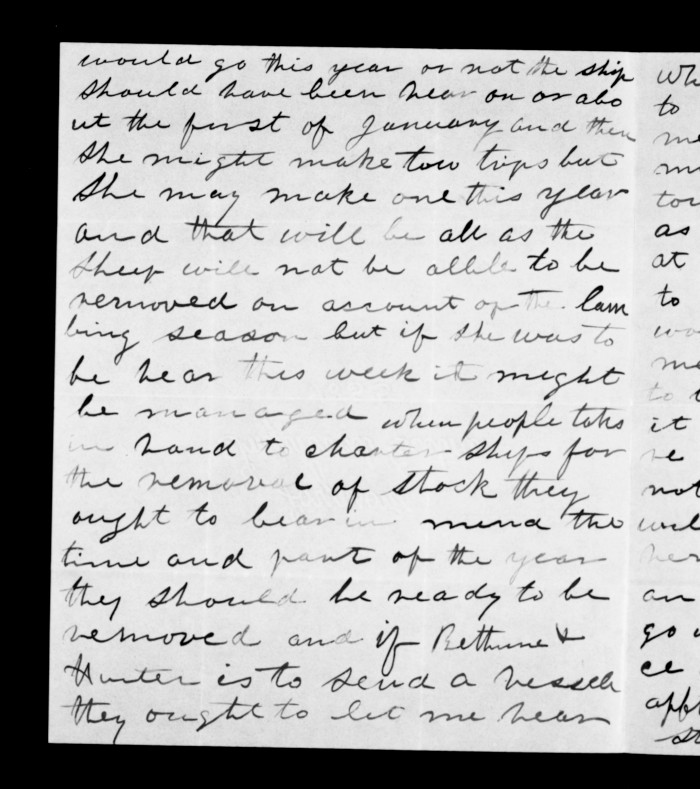 would go this year or not the ship
should have been hear on or abo
ut the first of January and then
she might make tow trips but
she may make one this year
and that will be all as the
sheep will not be allble to be
removed on account of the lam
bing season but if she was to
be hear this week it might
be managed when people take
in hand to charter ships for
the removal of stock they
ought to bear in mind the
time and part of the year
they should be ready to be
removed and if Bethune &
Hunter is to send a vessell
they ought to let me hear
to
me
as
at
to
me
to
it
re
not
an
go
ce